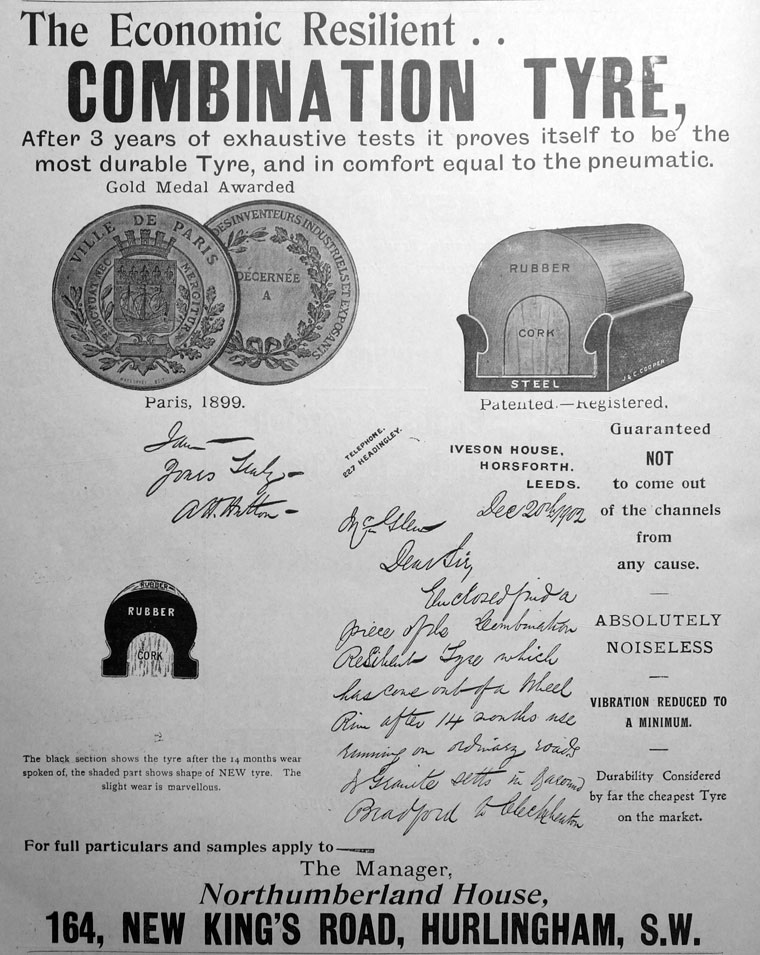 The Economic Resilient . .
COMBINATION TYRE,
After 3 years of exhaustive tests it proves itself to be the
most durable Tyre, and in comfort equal to the pneumatic.
Gold Medal Awarded
VILLE DE PARIS
FLUCTUAT NEC MERGITUR
DES INVENTEURS INDUSTRIELS ET EXPOSANTS
DÉCERNÉE
A
Paris, 1899.
RUBBER
CORK
STEEL
J & C. COOPER
Patented.—Registered.
I am
Yours Truly
TELEPHONE.
227 HEADINGLEY.
IVESON HOUSE,
HORSFORTH.
LEEDS.
Dec 20th/1902
Mr Glew
Dear Sir,
Enclosed find a
piece of the Combination
Resilient Tyre which
has come out of a Wheel
Rim after 14 months use
running on ordinary roads
& Granite setts in &
Bradford to Cleckheaton
Guaranteed
NOT
to come out
of the channels
from
any cause.
ABSOLUTELY
NOISELESS
VIBRATION REDUCED TO
A MINIMUM.
Durability Considered
by far the cheapest Tyre
on the market.
RUBBER
RUBBER
CORK
The black section shows the tyre after the 14 months wear
spoken of, the shaded part shows shape of NEW tyre. The
slight wear is marvellous.
For full particulars and samples apply to
The Manager,
Northumberland House,
164, NEW KING'S ROAD, HURLINGHAM, S.W.